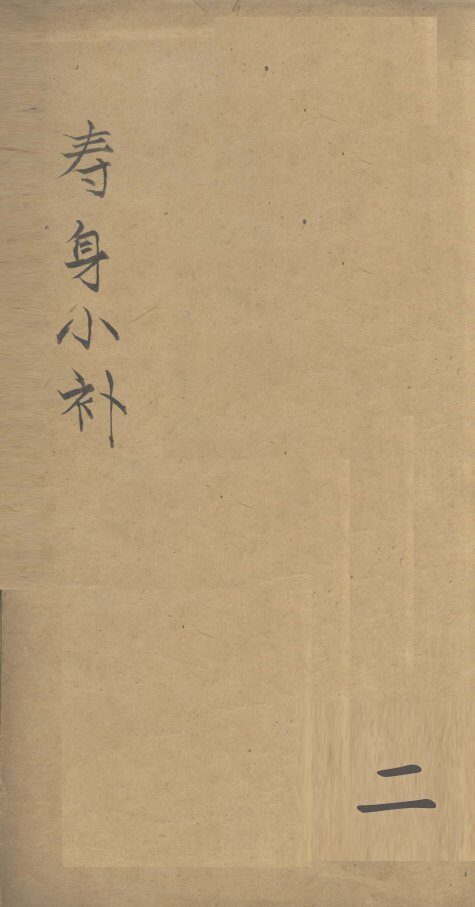 寿身小补
二